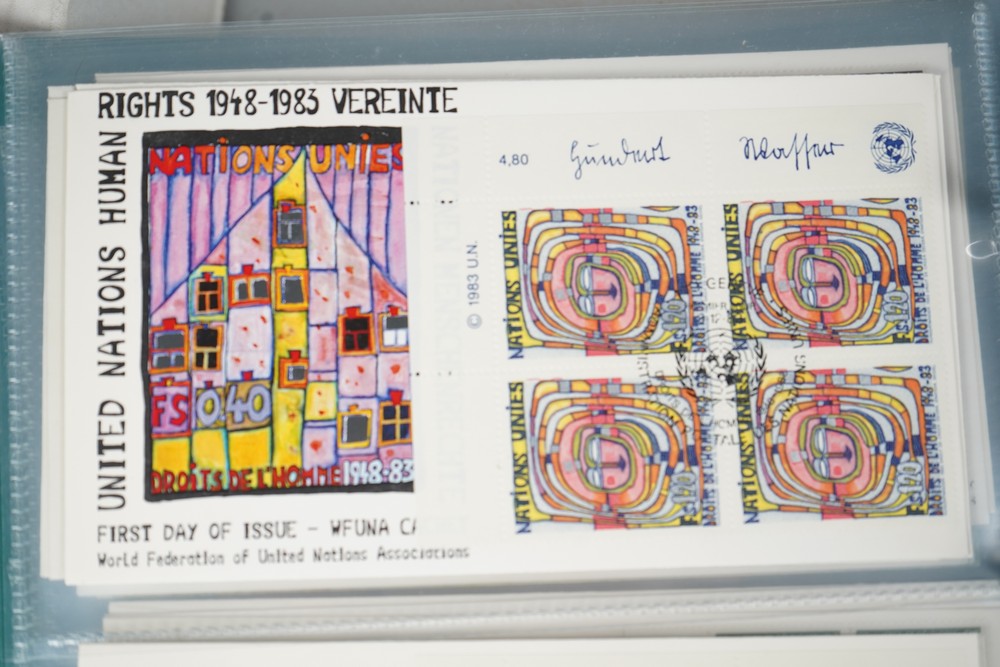 RIGHTS 1948-1983 VEREINTE
UNITED NATIONS HUMAN
NATIONS UNIES
FS 0,40
DROITS DE L'HOMME 1948-83
FIRST DAY OF ISSUE – WFUNA CA
World Federation of United Nations Associations
4,80 Hundert Wasser
© 1983 U.N.
NATIONS UNIES
FS 0,40
DROITS DE L'HOMME 1948-83
NATIONS UNIES
FS 0,40
DROITS DE L'HOMME 1948-83
NATIONS UNIES
FS 0,40
DROITS DE L'HOMME 1948-83
NATIONS UNIES
FS 0,40
DROITS DE L'HOMME 1948-83